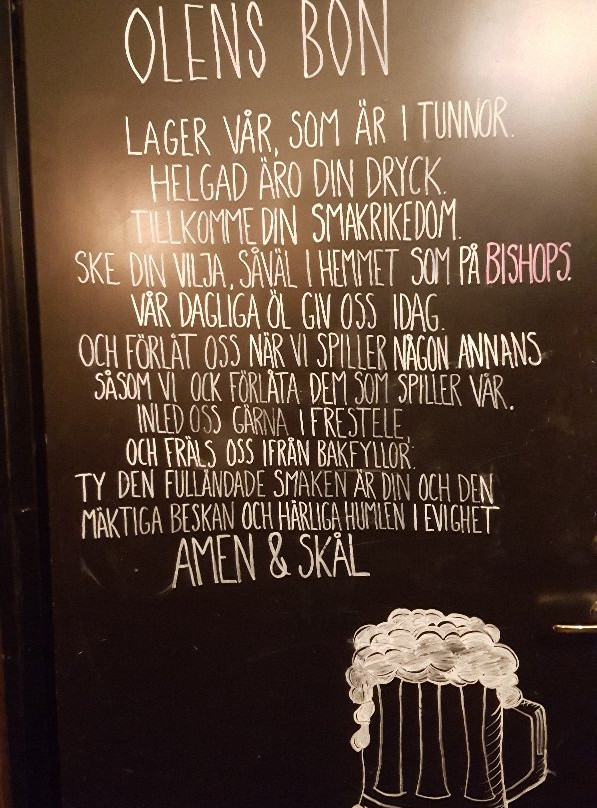 OLENS BÖN
LAGER VÅR, SOM ÄR I TUNNOR.
HELGAD ÄRO DIN DRYCK.
TILLKOMME DIN SMAKRIKEDOM.
SKE DIN VILJA, SÅVÄL I HEMMET SOM PÅ BISHOPS.
VÅR DAGLIGA ÖL GIV OSS IDAG.
OCH FÖRLÅT OSS NÄR VI SPILLER NÅGON ANNANS
SÅSOM VI OCK FÖRLÅTA DEM SOM SPILLER VÅR.
INLED OSS GÄRNA I FRESTELE,
OCH FRÄLS OSS IFRÅN BAKFYLLOR.
TY DEN FULLÄNDADE SMAKEN ÄR DIN OCH DEN
MÄKTIGA BESKAN OCH HÄRLIGA HUMLEN I EVIGHET
AMEN & SKÅL